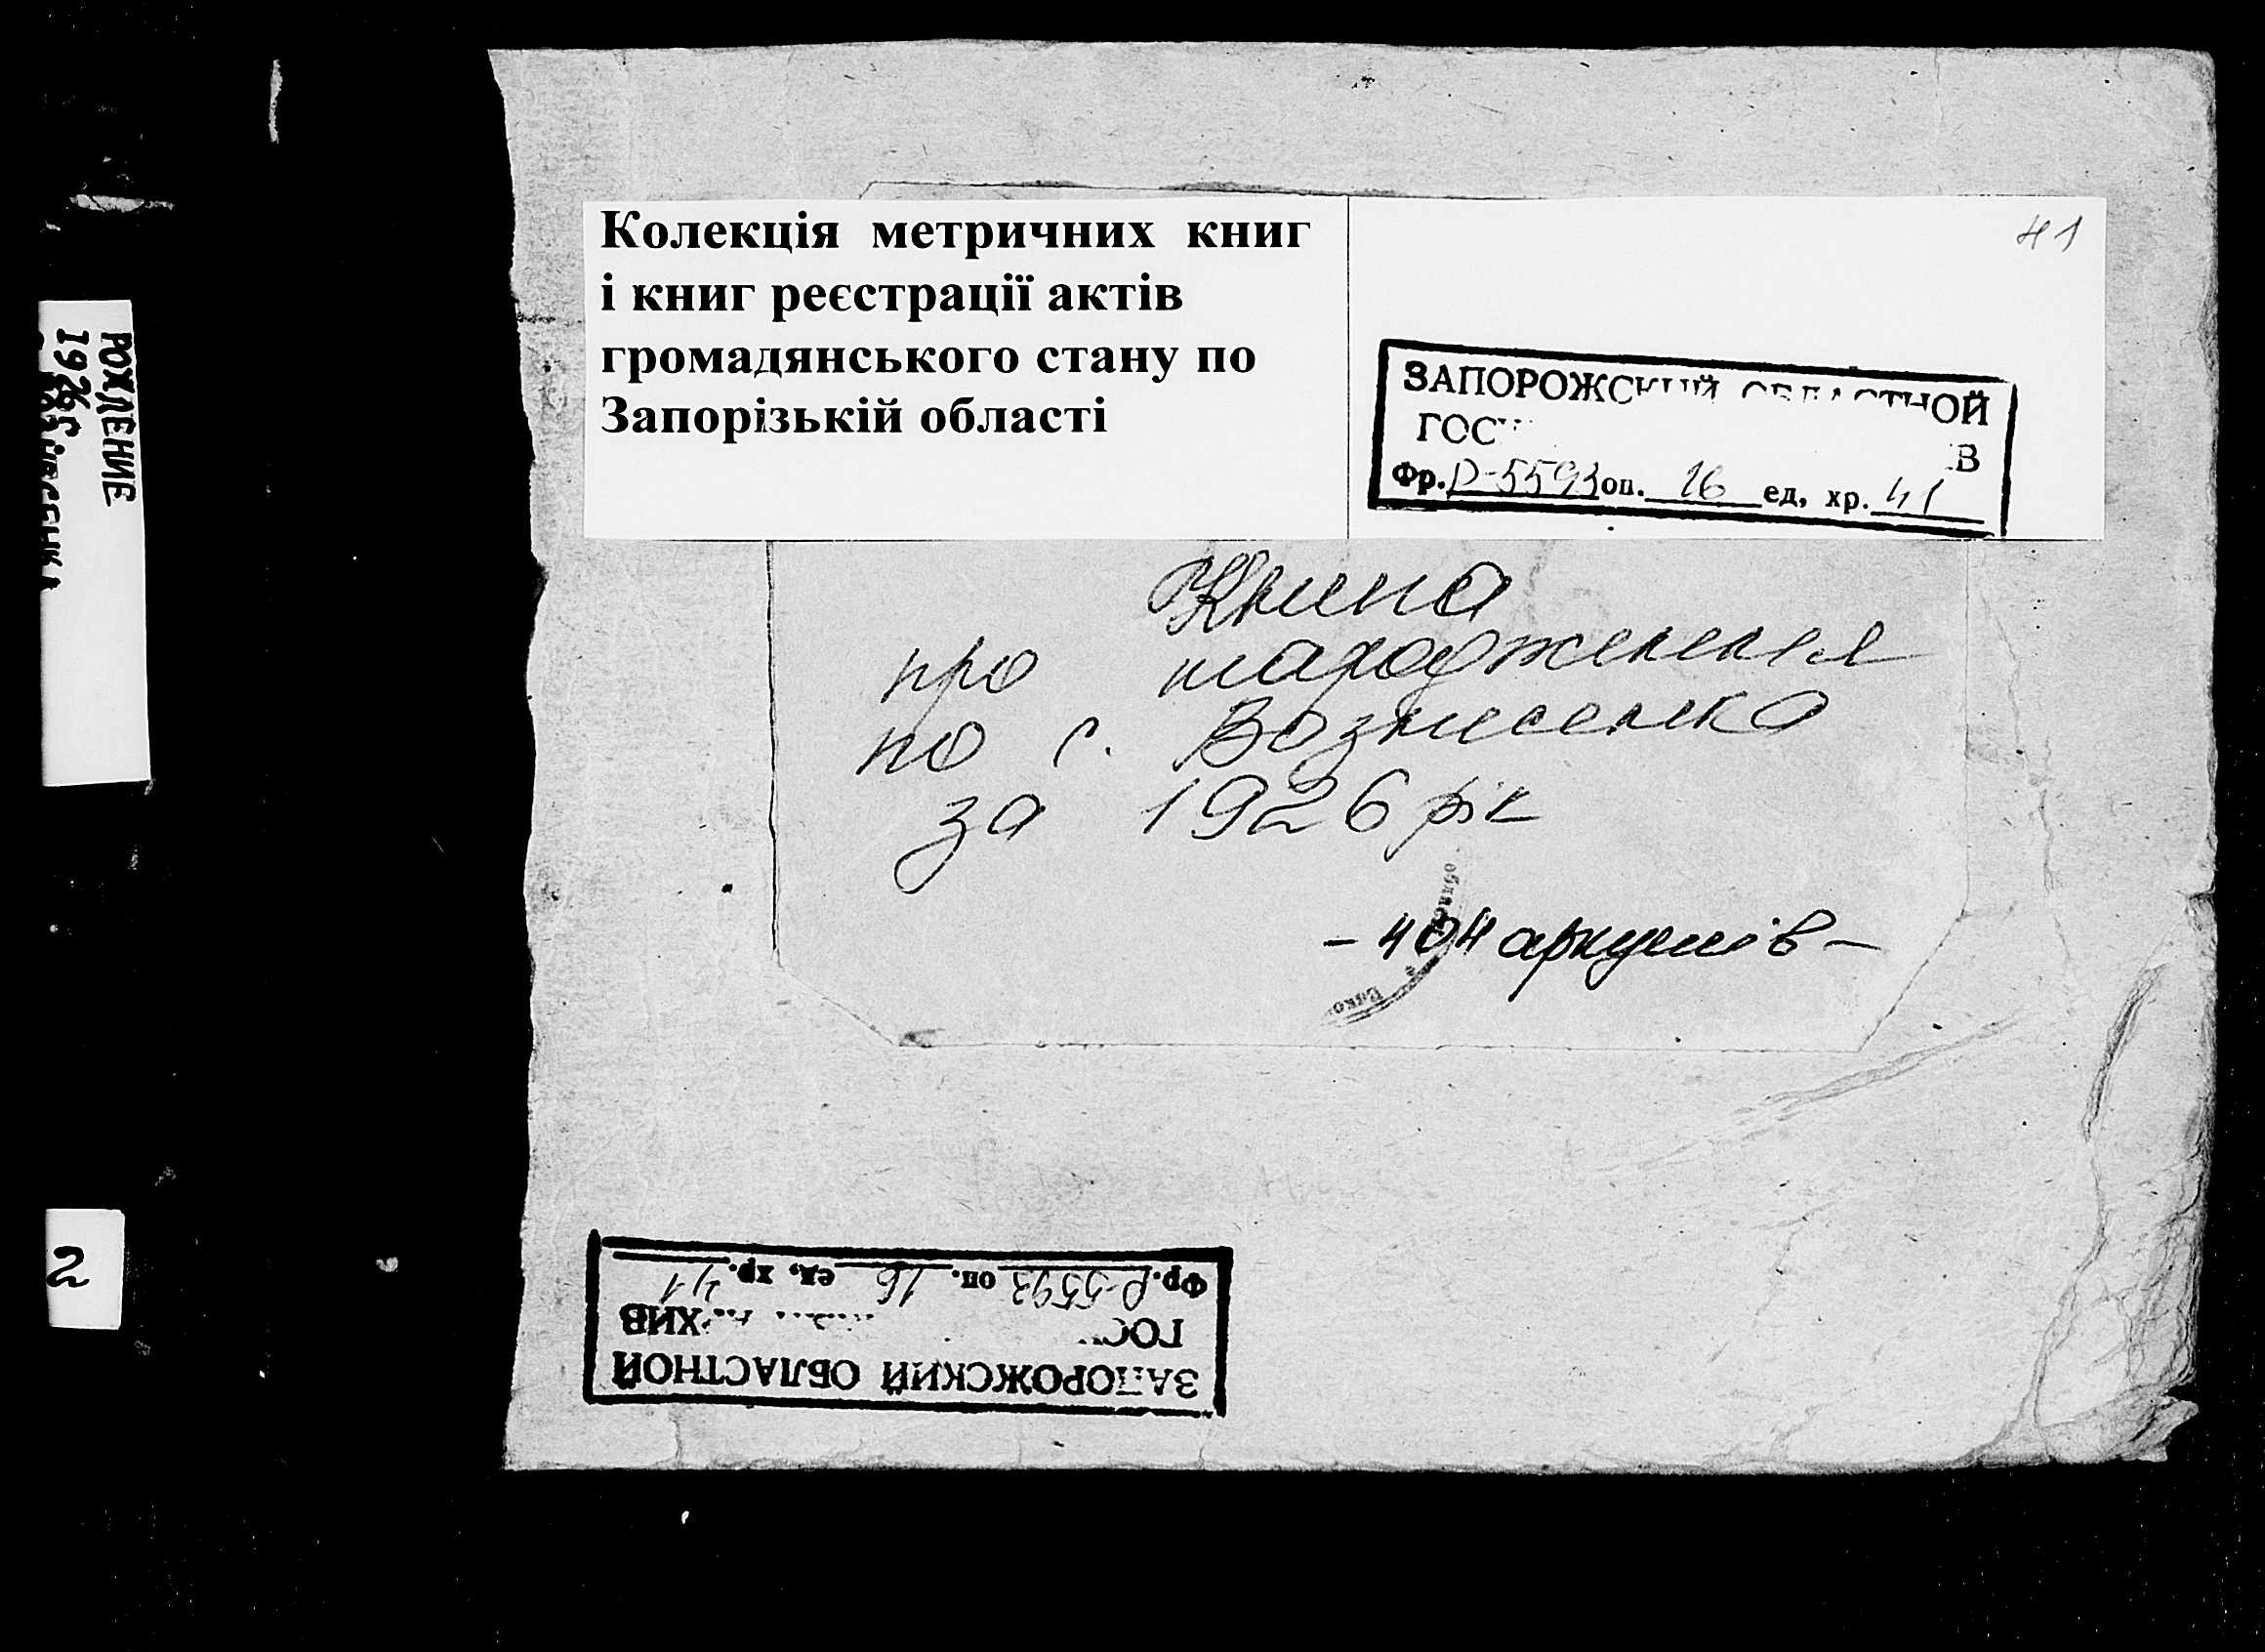 Колекція метричних книг
і книг реєстрації актів
громадянського стану по
Запорізькій області
41
ЗАПОРОЖСКИЙ ОБЛАСТНОЙ
Фр. Р-5593 оп. 16 ед, хр. 41
Книга
про народження
по с. Вознесенка
за 1926 рік
- 404 аркушів -
Фр. Р-5593 оп. 16 ед, хр. 41
ЗАПОРОЖСКИЙ ОБЛАСТНОЙ
РОЖДЕНИЕ
1926
2